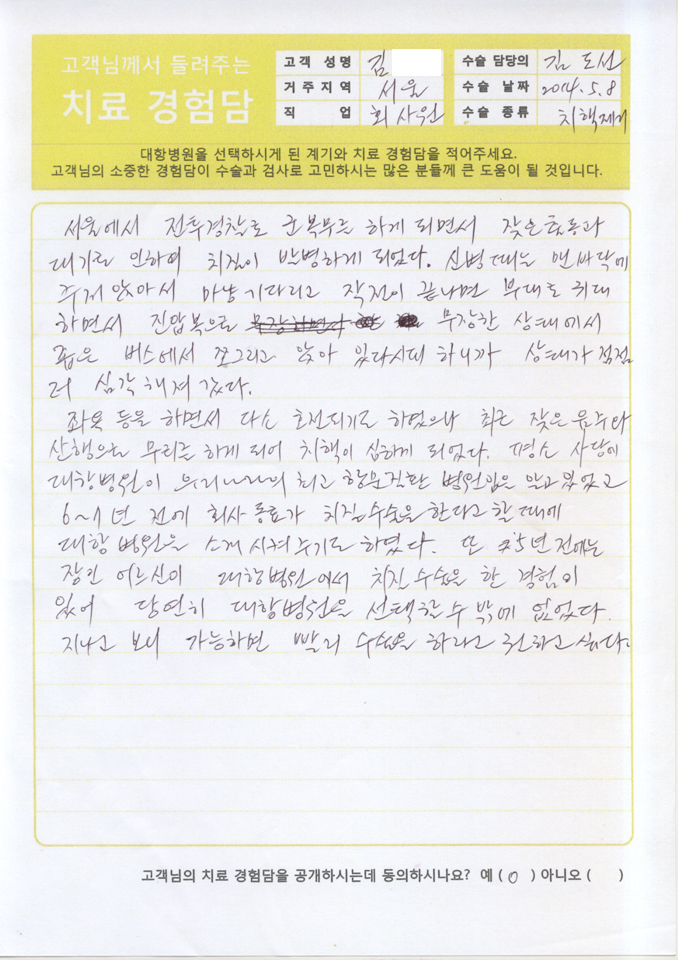 고객님께서 들려주는
치료 경험담
고객 성명 김
거주지역 서울
직 업 회사원
수술 담당의 김도선
수술 날짜 2014.5.8
수술 종류 치핵제거
대항병원을 선택하시게 된 계기와 치료 경험담을 적어주세요.
고객님의 소중한 경험담이 수술과 검사로 고민하시는 많은 분들께 큰 도움이 될 것입니다.
서울에서 전투경찰로 군복무를 하게 되면서 잦은 출동과
대기로 인하여 치질이 발병하게 되었다. 신병때는 맨바닥에
주저 앉아서 마냥 기다리고 작전이 끝나면 부대로 귀대
하면서 진압복으로 무장한 상태에서
좁은 버스에서 쪼그리고 앉아 있다시피 하니까 상태가 점점
더 심각해져 갔다.
좌욕 등을 하면서 다소 호전되기도 하였으나 최근 잦은 음주와
산행으로 무리를 하게 되어 치핵이 심하게 되었다. 평소 사당에
대항병원이 우리나라의 최고 항문질환 병원임은 알고 있었고
6~7년 전에 회사 동료가 치질수술을 한다고 할 때에
대항병원을 소개시켜 주기도 하였다. 또 5년전에는
장인 어르신이 대항병원에서 치질 수술을 한 경험이
있어 당연히 대항병원을 선택할 수 밖에 없었다.
지나고 보니 가능하면 빨리 수술을 하라고 권하고 싶다.
고객님의 치료 경험담을 공개하시는데 동의하시나요? 예 ( O ) 아니오 ( )